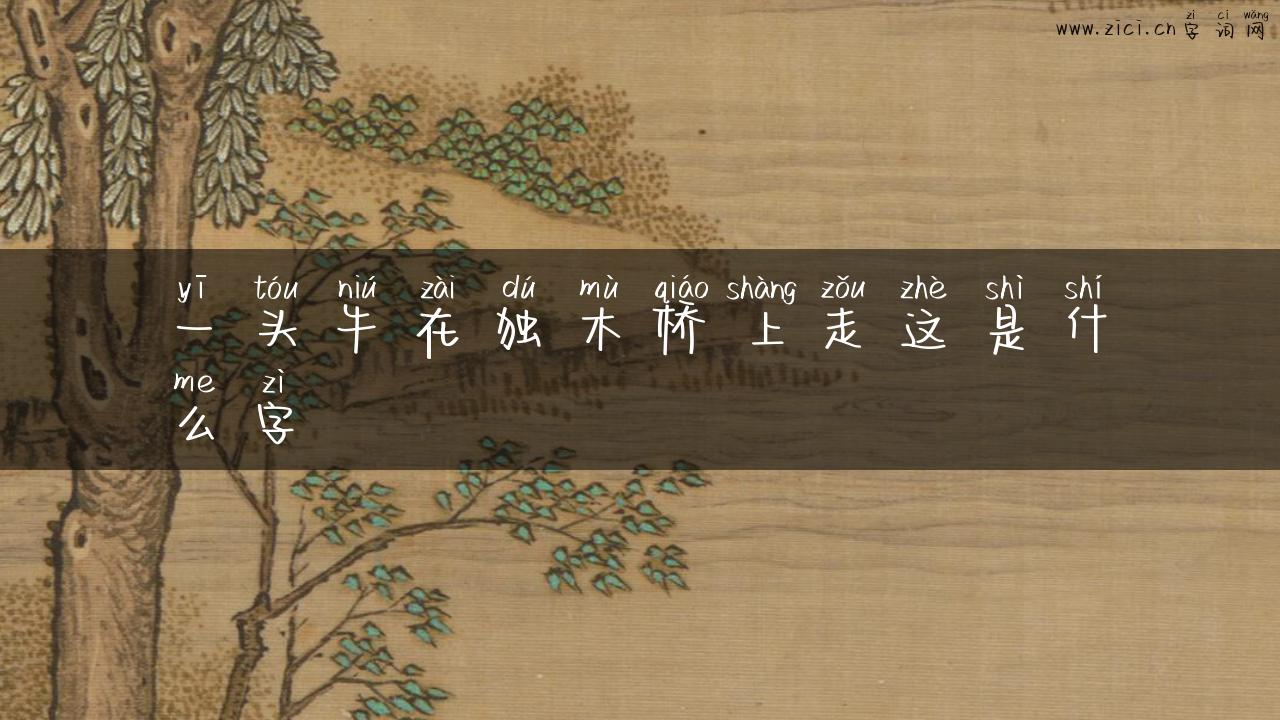 zì cí wǎng
www.zici.cn 字词网
yī tóu niú zài dú mù qiáo shàng zǒu zhè shì shí
一头牛在独木桥上走这是什
me zì
么字